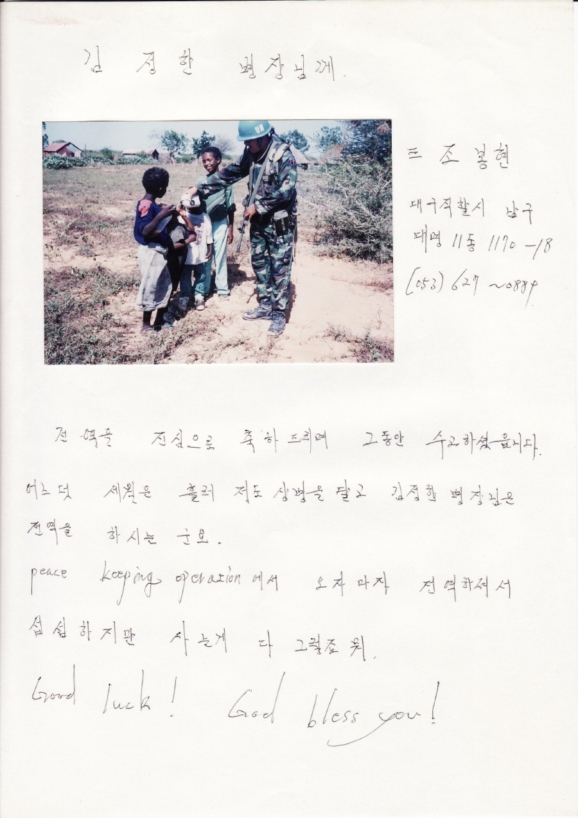 김 정 한 병장님께.
드 조봉현
대구직할시 남구
대명 11동 1170 -18
(053) 627 ~0884
전역을 진심으로 축하 드리며 그동안 수고하셨읍니다.
어느덧 세월은 흘러 저도 상병을 달고 김정한 병장님은
전역을 하시는 군요.
peace keeping operation에서 오자마자 전역하셔서
섭섭하지만 사는게 다 그렇죠 뭐.
Good luck! God bless you!